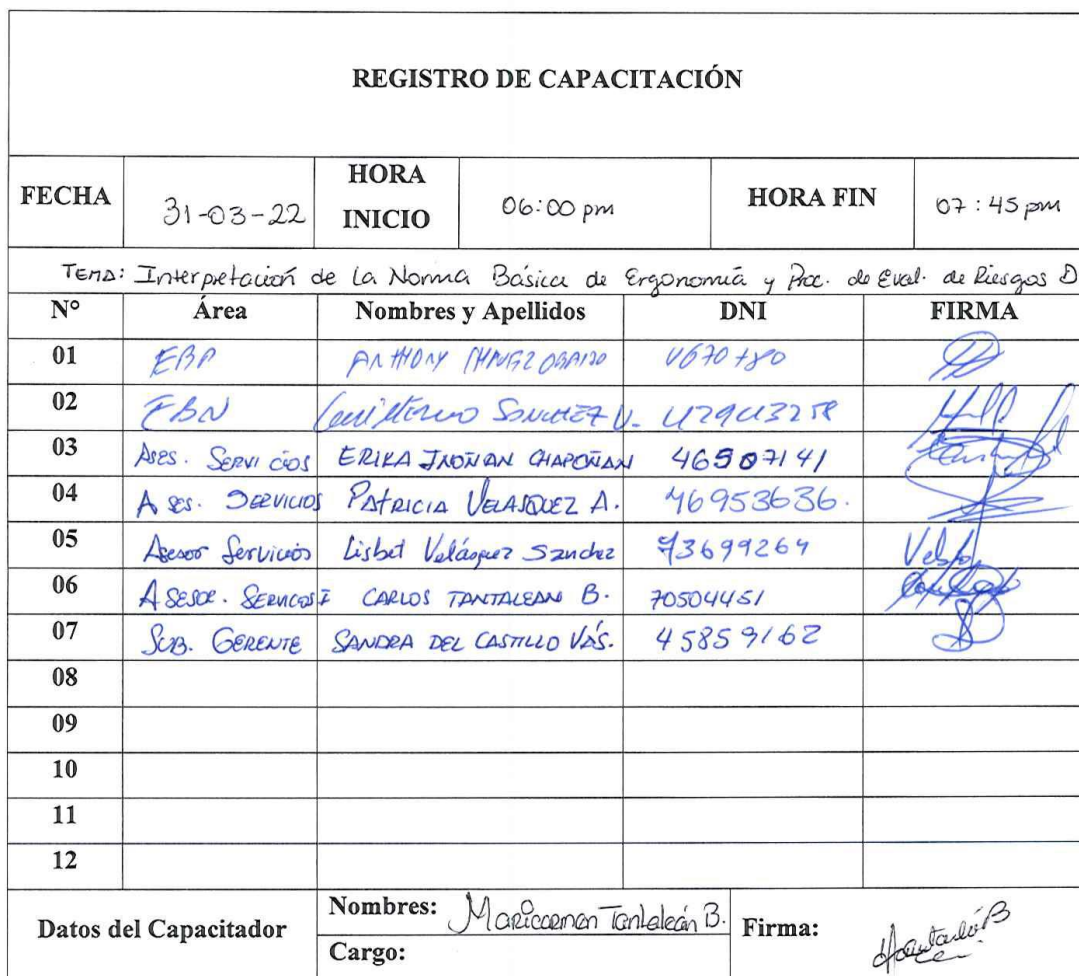 REGISTRO DE CAPACITACIÓN
FECHA 31-03-22 HORA INICIO 06:00 pm HORA FIN 07:45 pm
TEMA: Interpretación de la Norma Básica de Ergonomía y Proc. de Eval. de Riesgos D
N° Área Nombres y Apellidos DNI FIRMA
01 ANTHONY
02 EBN Guillermo SANCHEZ V.
03 ASES. SERVICIOS ERIKA INOÑAN CHAPOÑAN 46507141
04 ASES. SERVICIOS PATRICIA VELASQUEZ A. 46953636.
05 Asesor Servicios Lisbet Velásquez Sanchez 73699264
06 ASESOR. SERVICIOS I CARLOS TANTALEAN B. 70504451
07 SUB. GERENTE SANDRA DEL CASTILLO VÁS. 45859162
08
09
10
11
12
Datos del Capacitador Nombres: Maricarmen Tantaleán B. Firma:
Cargo: